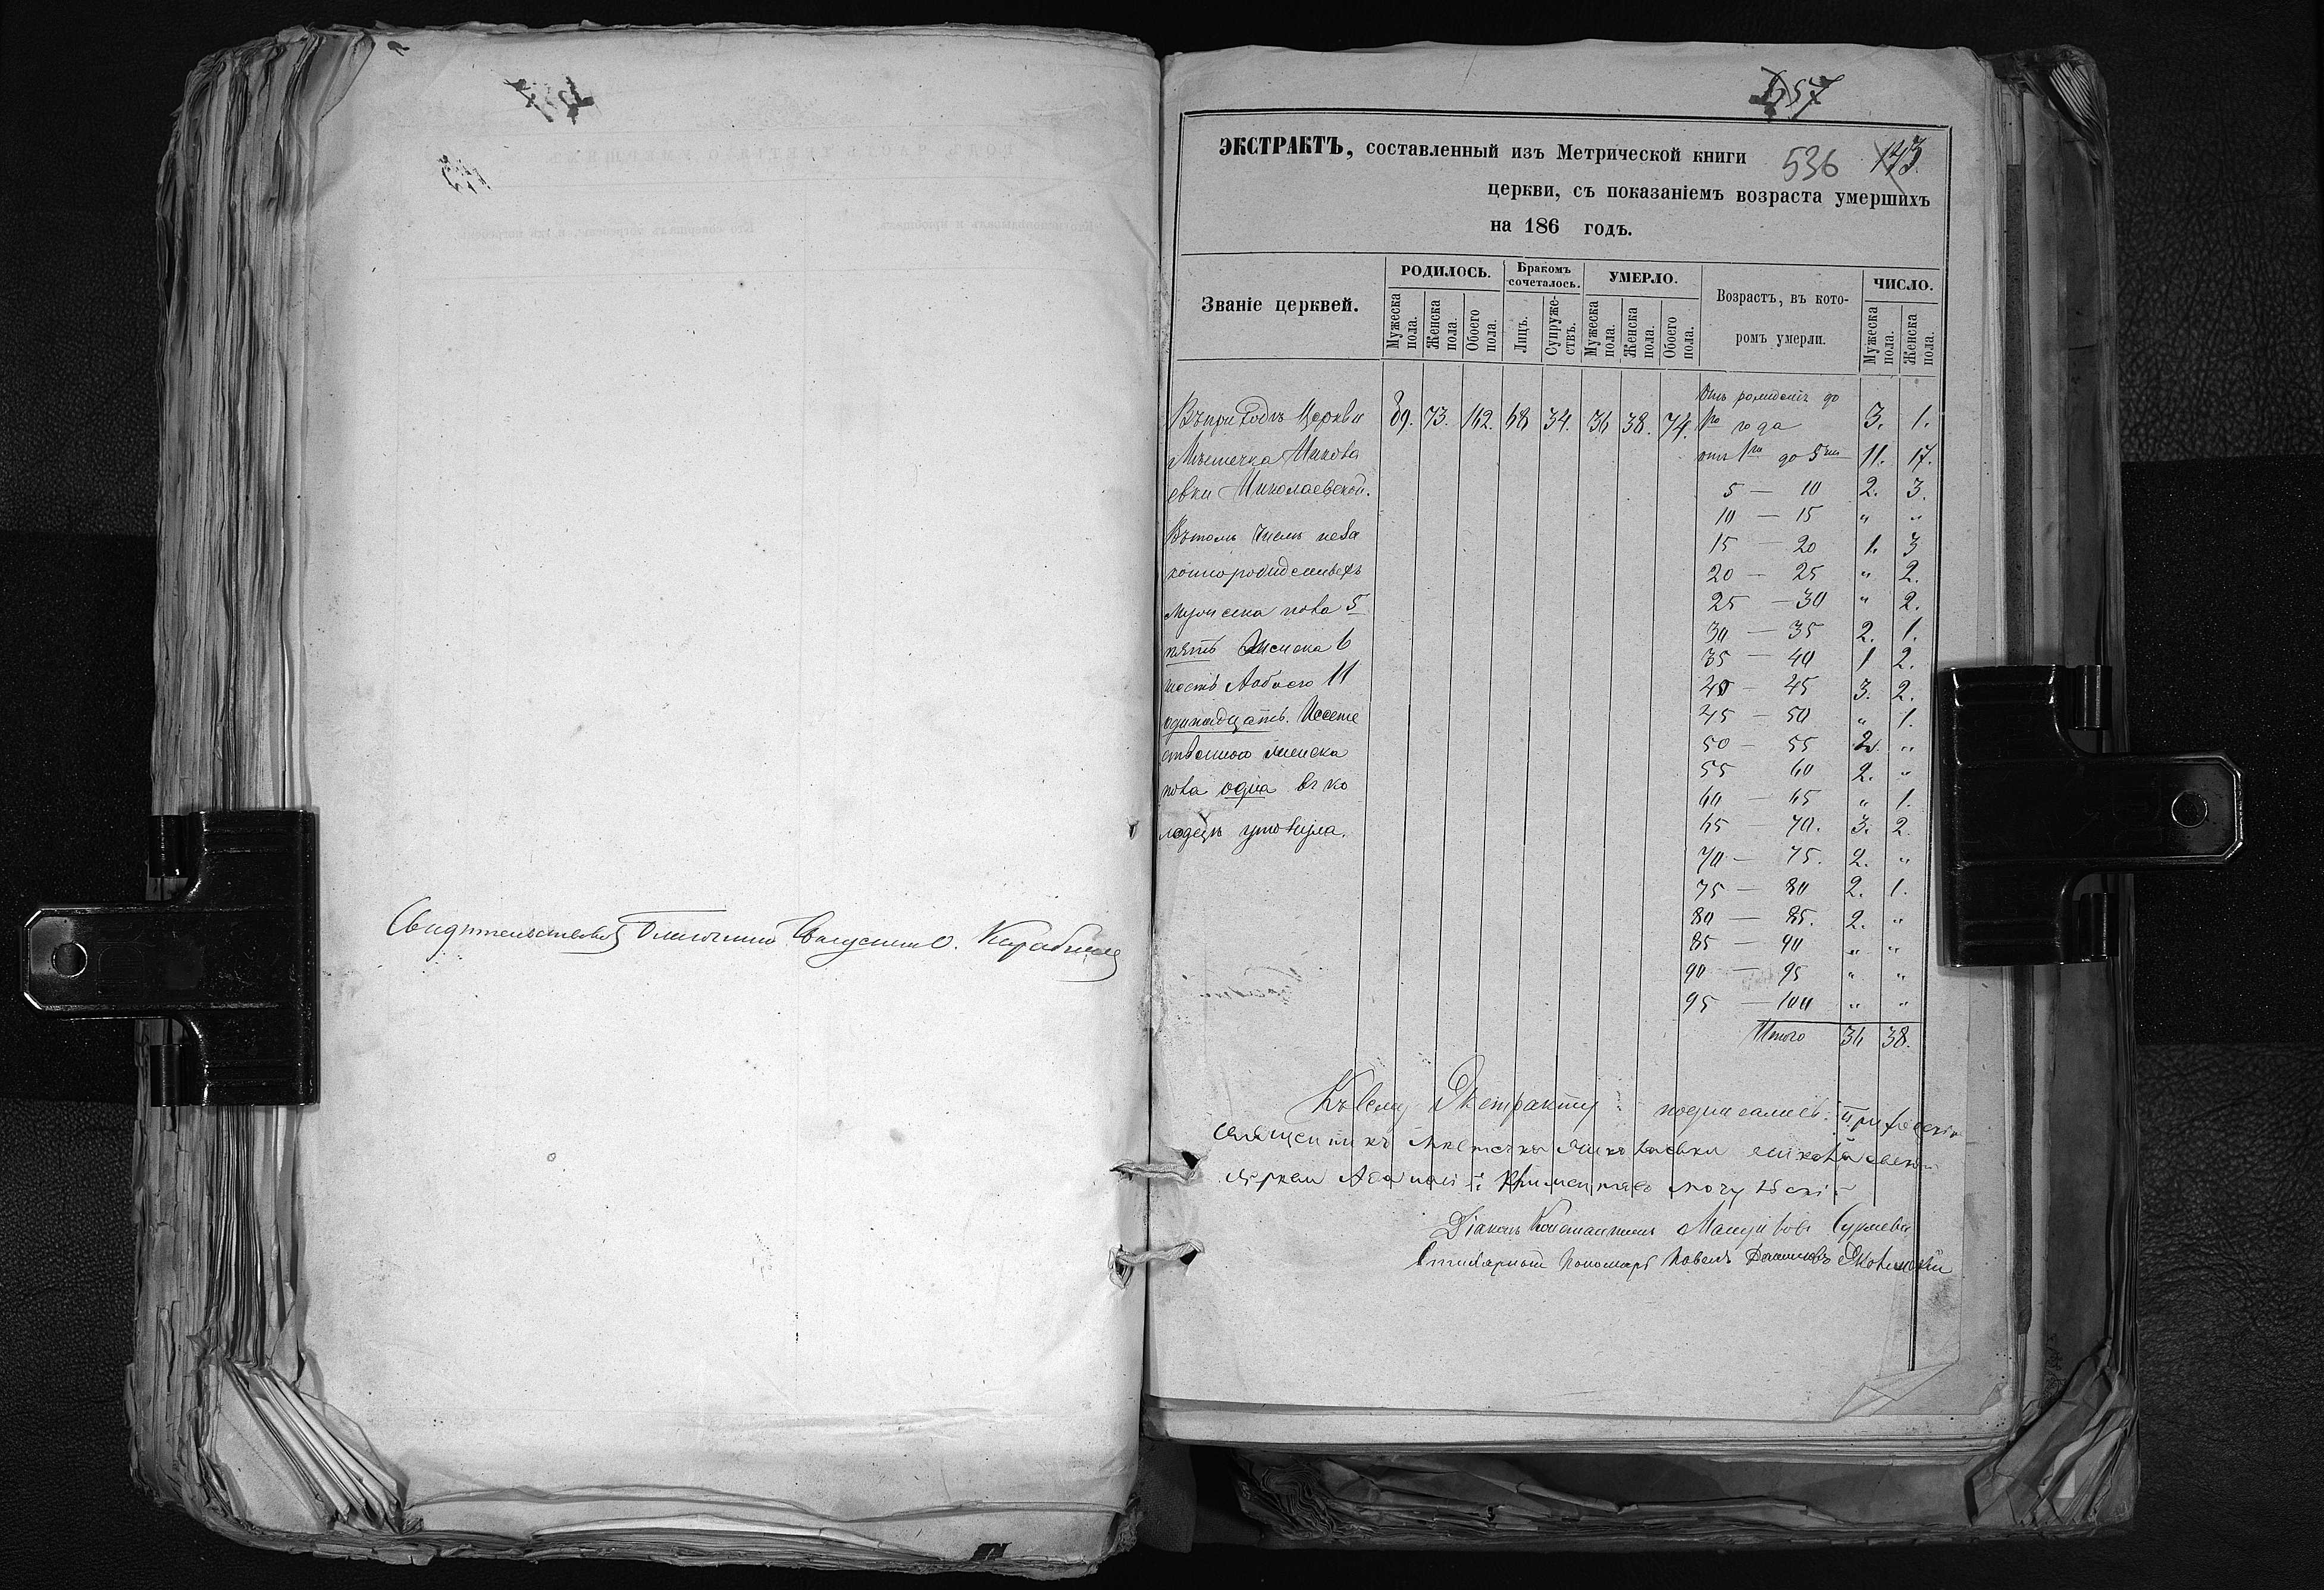 Свидѣтельствовалъ Благочинный Священникъ
557
ЭКСТРАКТЪ, составленный изъ Метрической книги 536 143
церкви, съ показаніемъ возраста умершихъ
на 186 годъ.
Званіе церквей. РОДИЛОСЬ. Бракомъ сочеталось. УМЕРЛО. Возрастъ, въ кото-ромъ умерли. ЧИСЛО.
Мужеска пола. Женска пола. Обоего пола. Лицъ. Супруже-ствъ. Мужеска пола. Женска пола. Обоего пола. Мужеска пола. Женска пола.
Въ приходѣ Церкви 89. 73. 162. 68 34. 36 38. 74. Отъ рожденія до 1го года 3. 1.
Мѣстечка Никола
евки Николаевской.
Въ томъ числѣ неза
коннорожденныхъ
мужеска пола 5
пять Женска 6
шесть Аобоего 11
одинадцать. Несте
ственно женска
пола одна въ ко
лодезѣ утонула.
отъ 1го до 5ти 11. 17.
5 — 10 2. 3.
10 — 15 " "
15 — 20 1. 3
20 — 25 " 2.
25 — 30 " 2.
30 — 35 2. 1.
35 — 40 1 2.
40 — 45 3. 2.
45 — 50 " 1.
50 — 55 2. "
55 60 2. "
60 — 65 " 1.
65 — 70. 3. 2.
70 — 75. 2. "
75 — 80 2. 1.
80 — 85. 2. "
85 — 90 " "
90 — 95 " "
95 — 100 " "
Итого 36 38.
Къ сему Экстракту подписались: Приходскій
Священникъ Мѣстечка Николаевки Николаевской
Церкви
Діаконъ Константинъ
Пономарь Павелъ